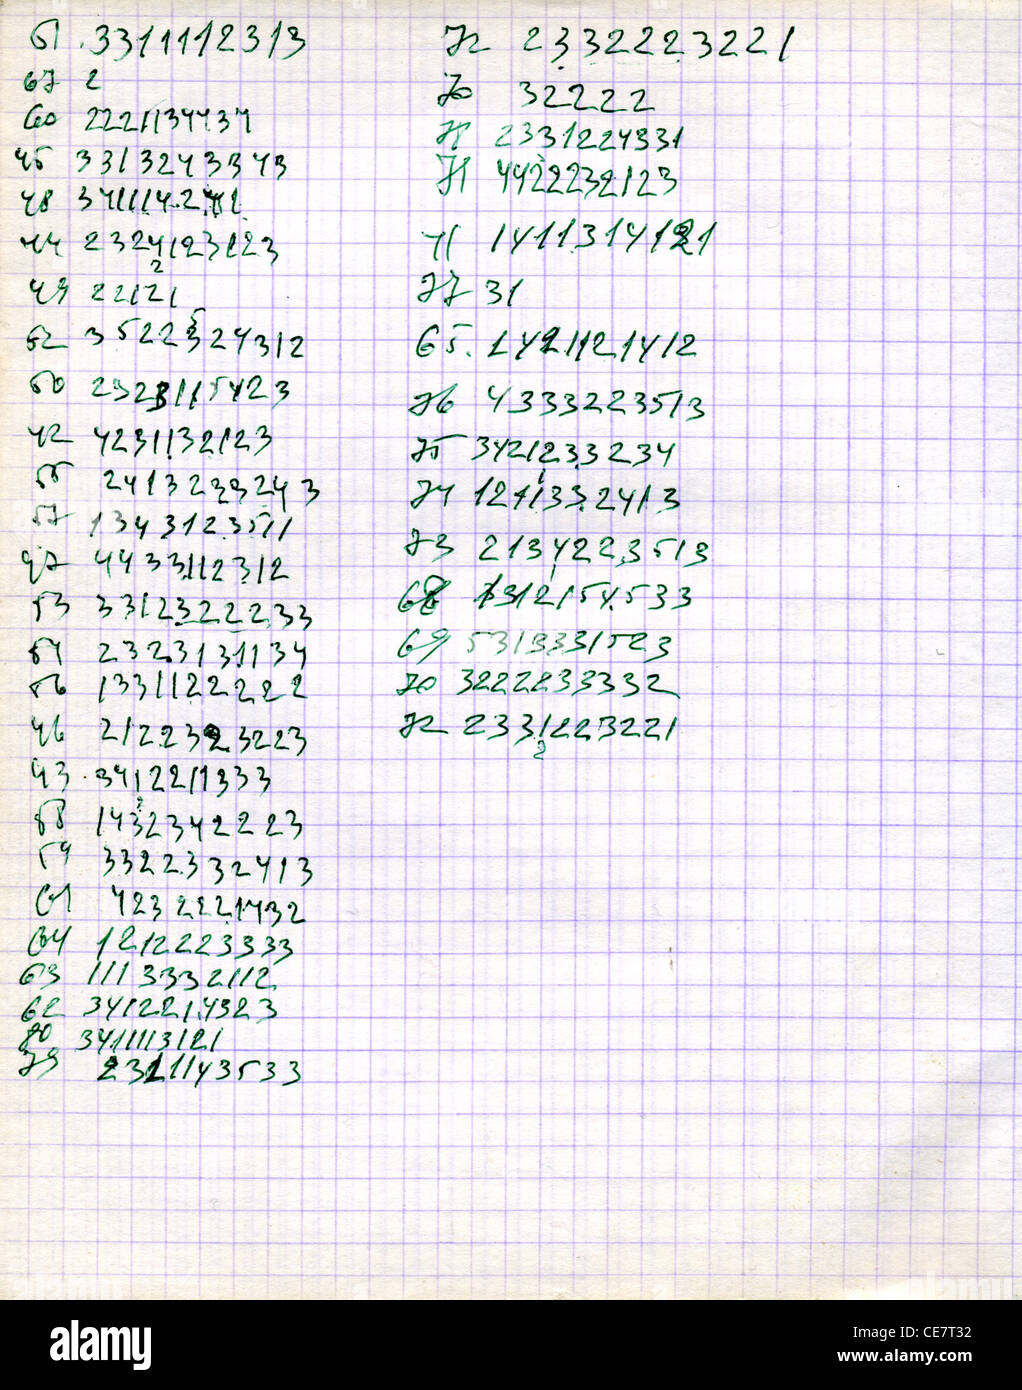 51 .3311112313
67 2
60 2221134434
45 3313243343
48 3411142.41
44 2324123123
2
49 22121
5
52 3522324312
50 2323115423
42 4231132123
55 2413233243
57 1343123511
47 4433112312
53 3312322233
54 2323131134
56 1331122222
46 2122323223
43 .341221333
2
58 1432342223
59 3322332413
61 4232221432
64 1212223333
63 1113332112
62 3412214323
80 341113121
79 2321143533
72 2332223221
70 32222
78 2331224331
71 4422232123
41 1411314121
77 31
65. 1421121412
76 4333223513
75 3421233234
1
74 121332413
73 2134223513
68 1312154533
69 5313331523
70 3222233332
72 2331223221
2
alamy
Image ID: CE7T32
www.alamy.com